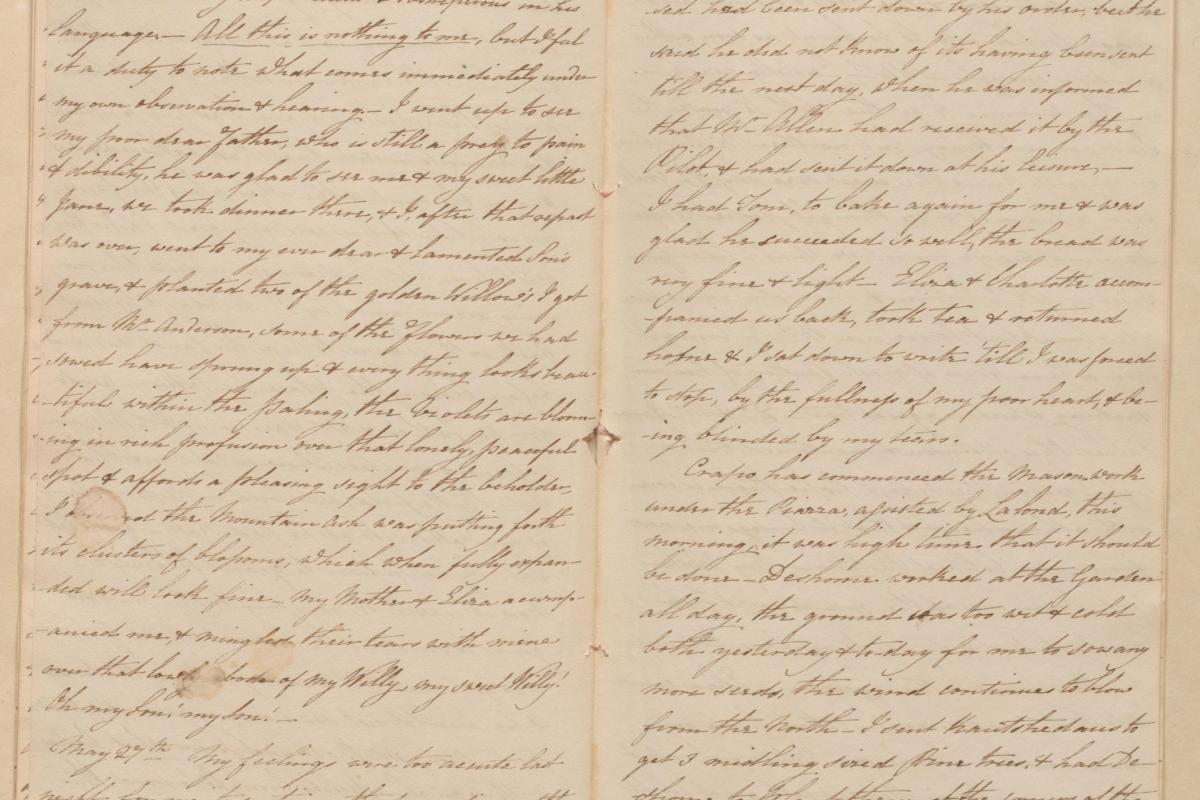 in his
language.— All this is nothing to me, but I ful
it a duty to note what comes immediately under
my own observation & hearing.— I went up to see
my poor dear Father, who is still a prey to pain
& dibility, he was glad to see me & my sweet little
Jane, we took dinner there, & I, after that repast
was over, went to my ever dear & lamented Son's
grave, & planted two of the golden Willow's I got
from Mr. Anderson, some of the Flowers we had
sowed have sprung up & every thing looks beau-
-tiful within the paling, the Violets are bloom-
ing in rich profusion over that lonely, peaceful
spot & affords a pleasing sight to the beholder,
I the Mountain Ash was putting forth
its clusters of blossoms, which when fully expan-
ded will look fine— My Mother & Eliza accomp-
anied me, & mingled their tears with mine
over that abode of my Willy, my sweet Willy!
Oh my Son! my Son! —
May 27th My feelings were too acute last
sed had been sent down by his order, but he
said he did not know of its having been sent
till the next day, when he was informed
that Mr. Allen had received it by the
Pilot, & had sent it down at his leisure,—
I had Tom, to bake again for me & was
glad he succeeded so well, the bread was
very fine & light— Eliza & Charlotte accom-
-panied us back, took tea & returned
home & I sat down to write 'till I was forced
to stop, by the fullness of my poor heart, & be-
-ing blinded by my tears.
Crapo has commenced the Mason work
under the Piazza, assisted by Lalond, this
morning, it was high time that it should
be done— Deshome worked at the Garden
all day, the ground was too wet & cold
both yesterday & to day for me to sow any
more seeds, the wind continues to blow
from the North— I sent to
get 3 midling sized Pine trees, & had De-